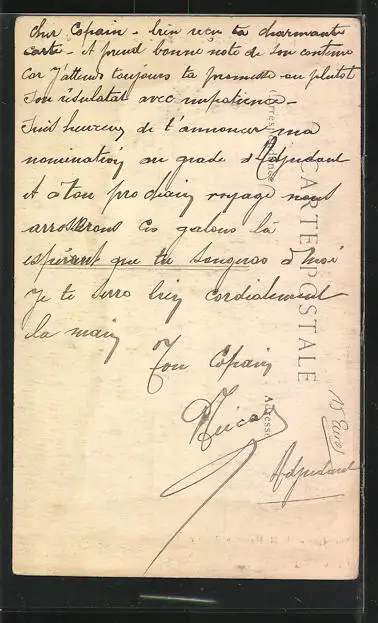 Cher Copain - bien reçu ta charmante
carte - et prend bonne note de son contenu
Car J'attends toujours ta promesse ou plutot
son résulatat avec impatience -
Suis heureux de t'annoncer ma
nomination au grade d'Adjudant
et à ton prochain voyage nous
arroserons ces galons là
espérant que tu songeras à moi
Je te serre bien cordialement
la main
Ton Copain
Adjudant
CARTE POSTALE
Correspondance
Adresse